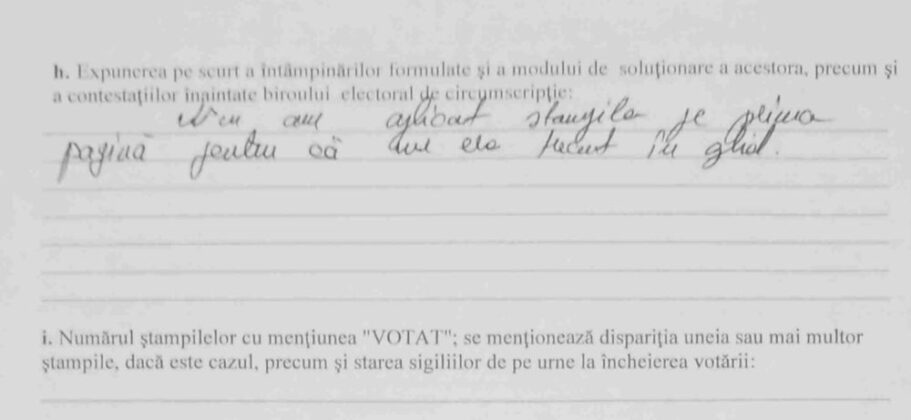 h. Expunerea pe scurt a întâmpinărilor formulate şi a modului de soluţionare a acestora, precum şi
a contestaţiilor înaintate biroului electoral de circumscripţie:
Nu am aplicat stampila pe prima
pagină pentru că nu era trecut în ghid.
i. Numărul ştampilelor cu menţiunea "VOTAT"; se menţionează dispariţia uneia sau mai multor
ştampile, dacă este cazul, precum şi starea sigiliilor de pe urne la încheierea votării: